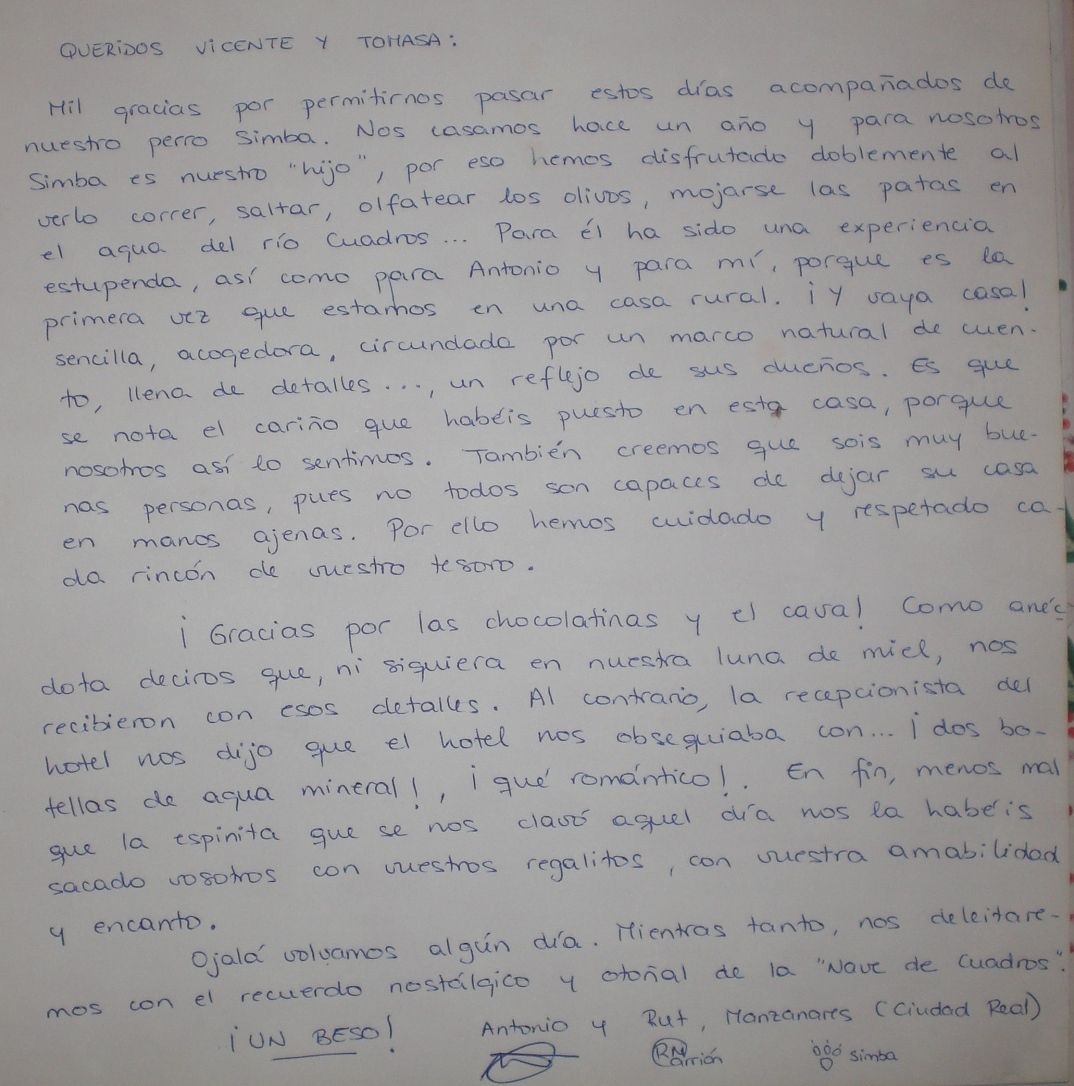 QUERIDOS VICENTE Y TOMASA:
Mil gracias por permitirnos pasar estos días acompañados de
nuestro perro Simba. Nos casamos hace un año y para nosotros
Simba es nuestro "hijo", por eso hemos disfrutado doblemente al
verlo correr, saltar, olfatear los olivos, mojarse las patas en
el agua del río Cuadros... Para él ha sido una experiencia
estupenda, así como para Antonio y para mí, porque es la
primera vez que estamos en una casa rural. ¡Y vaya casa!
sencilla, acogedora, circundada por un marco natural de cuen-
to, llena de detalles..., un reflejo de sus dueños. Es que
se nota el cariño que habéis puesto en esta casa, porque
nosotros así lo sentimos. También creemos que sois muy bue-
nas personas, pues no todos son capaces de dejar su casa
en manos ajenas. Por ello hemos cuidado y respetado ca-
da rincón de vuestro tesoro.
¡Gracias por las chocolatinas y el cava! Como anéc-
dota deciros que, ni siquiera en nuestra luna de miel, nos
recibieron con esos detalles. Al contrario, la recepcionista del
hotel nos dijo que el hotel nos obsequiaba con... ¡dos bo-
tellas de agua mineral!, ¡qué romántico!. En fin, menos mal
que la espinita que se nos clavó aquel día nos la habéis
sacado vosotros con vuestros regalitos, con vuestra amabilidad
y encanto.
Ojalá volvamos algún día. Mientras tanto, nos deleitare-
mos con el recuerdo nostálgico y otoñal de la "Nave de Cuadros".
¡UN BESO! Antonio y Rut, Manzanares (Ciudad Real)
RN Carrión Simba